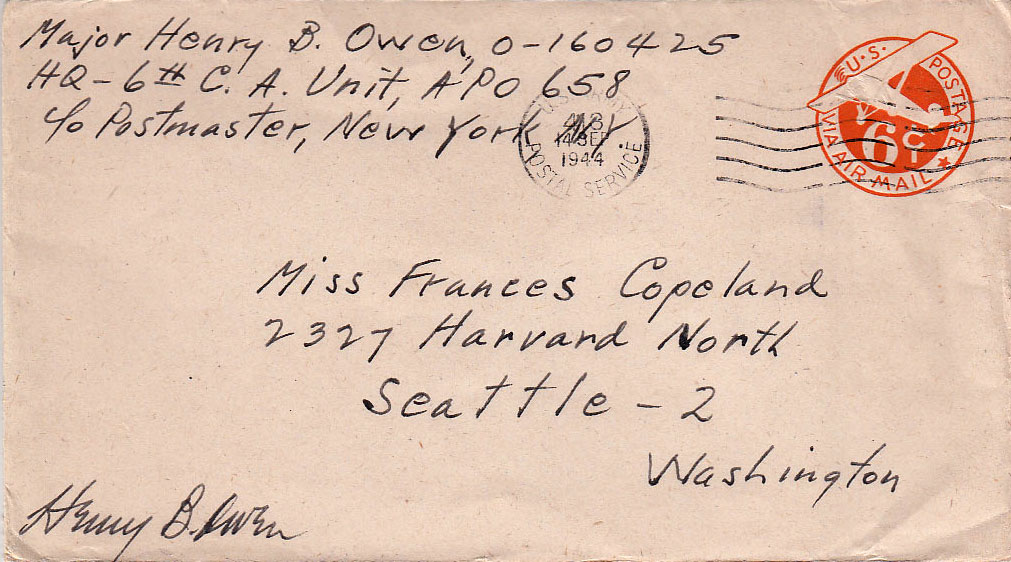 Major Henry B. Owen, O-160425
HQ - 6th C. A. Unit, APO 658
c/o Postmaster, New York N.Y.
U.S. ARMY
14 SEP
1944
POSTAL SERVICE
U.S. POSTAGE
6¢
VIA AIR MAIL
Miss Frances Copeland
2327 Harvard North
Seattle - 2
Washington
Henry B. Owen